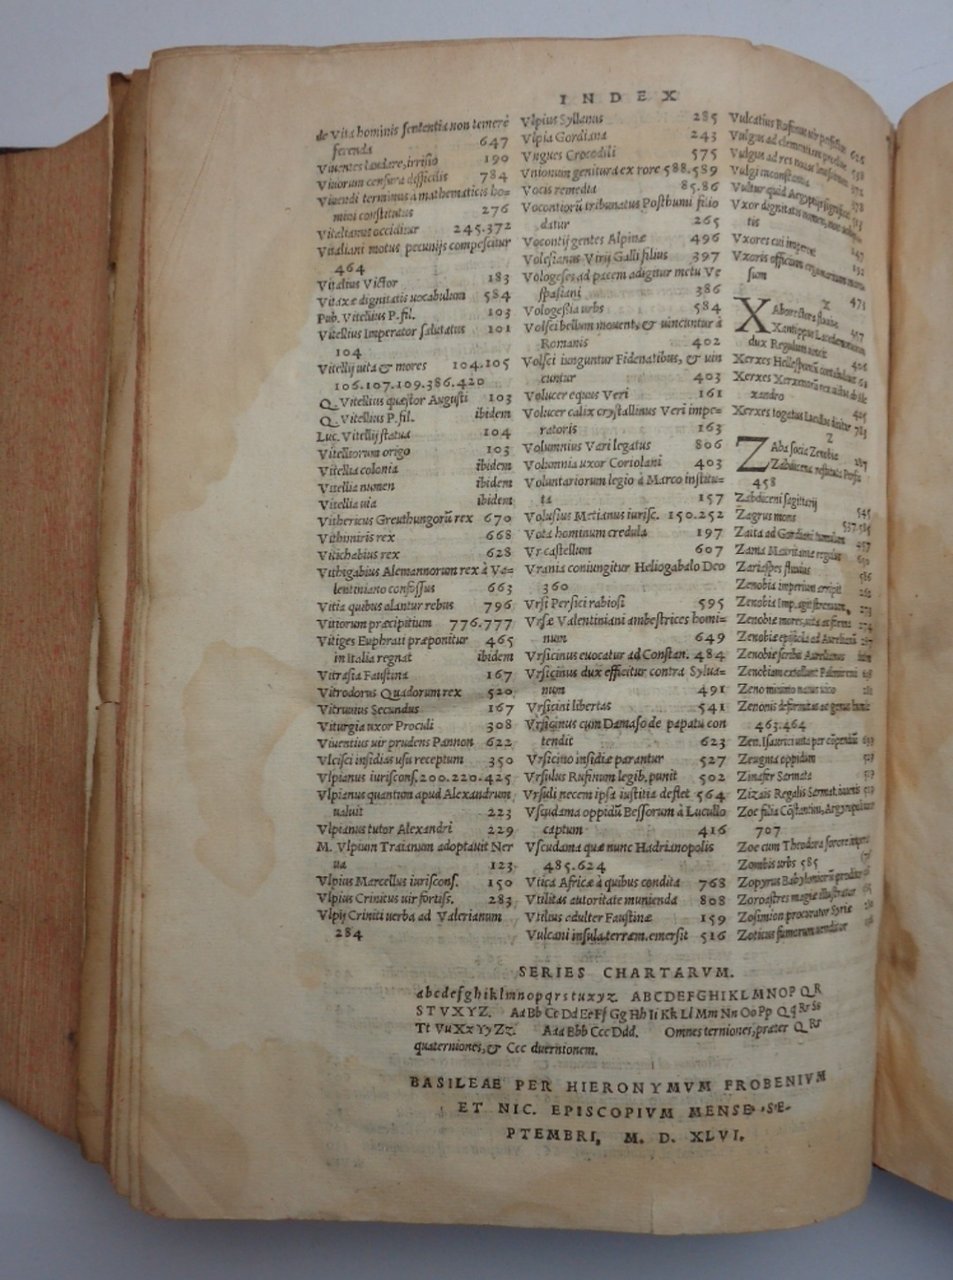 INDEX
de Vita hominis sententia non temerè
ferenda 647
Viuentes laudare, irrisio 190
Viuorum censura difficilis 784
Viuendi terminus à mathematicis ho=
mini constitutus 276
Vitalianus occiditur 245.372
Vitaliani motus pecunijs compescitur
464
Vitalius Victor 183
Vitaxæ dignitatis uocabulum 584
Pub. Vitellius P. fil. 103
Vitellius Imperator salutatus 101
104
Vitellij uita & mores 104.105
106.107.109.386.420
Q. Vitellius quæstor Augusti 103
Q. Vitellius P. fil. ibidem
Luc. Vitellij statua 104
Vitelliorum origo 103
Vitellia colonia ibidem
Vitellia numen ibidem
Vitellia uia ibidem
Vithericus Greuthungorũ rex 670
Vithimiris rex 668
Vitichabius rex 628
Vithigabius Alemannorum rex à Va=
lentiniano confossus 663
Vitia quibus alantur rebus 796
Vitiorum præcipitium 776.777
Vitiges Euphrati præponitur 465
in Italia regnat ibidem
Vitrasia Faustina 167
Vitrodorus Quadorum rex 520
Vitruuius Secundus 167
Viturgia uxor Proculi 308
Viuentius uir prudens Pannon 622
Vlcisci insidias usu receptum 350
Vlpianus iurisconf. 200.220.425
Vlpianus quantum apud Alexandrum
ualuit 223
Vlpianus tutor Alexandri 229
M. Vlpium Traianum adoptauit Ner
ua 123
Vlpius Marcellus iurisconf. 150
Vlpius Crinitus uir fortiss. 283
Vlpij Criniti uerba ad Valerianum
284
Vlpius Syllanus 285
Vlpia Gordiana 243
Vngues Crocodili 575
Vnionum genitura ex rore 588.589
Vocis remedia 85.86
Vocontiorũ tribunatus Posthumi filio
datur 265
Vocontij gentes Alpinæ 496
Volesianus Virij Galli filius 397
Vologeses ad pacem adigitur metu Ve
spasiani 386
Vologessia urbs 584
Volsci bellum mouent, & uincuntur à
Romanis 402
Volsci iunguntur Fidenatibus, & uin
cuntur 403
Volucer equus Veri 161
Volucer calix crystallinus Veri impe=
ratoris 163
Volumnius Vari legatus 806
Volumnia uxor Coriolani 403
Voluntariorum legio à Marco institu=
ta 157
Volusius Metianus iurisc. 150.252
Vota hominum credula 197
Vr castellum 607
Vrania coniungitur Heliogabalo Deo
360
Vrsi Persici rabiosi 595
Vrsæ Valentiniani ambestrices homi=
num 649
Vrsicinus euocatur ad Constan. 484
Vrsicinus dux efficitur contra Sylua=
num 491
Vrsicini libertas 541
Vrsicinus cum Damaso de papatu con
tendit 623
Vrsicino insidiæ parantur 527
Vrsulus Rufinum legib. punit 502
Vrsuli necem ipsa iustitia deflet 564
Vscudama oppidũ Bessorum à Lucullo
captum 416
Vscudama quæ nunc Hadrianopolis
485.624
Vtica Africæ à quibus condita 768
Vtilitas autoritate munienda 808
Vtilius adulter Faustinæ 159
Vulcani insula terræm. emersit 516
Vulcatius Rufinus uir
Vulgus ad
Vulgus ad res nouas
Vulgi inconstantia
Vultur quid Aegyptijs significet
Vxor dignitatis nomen, non
tis
Vxores cui
Vxoris officium
sum 471
X
XAbores fluuius
Xantippus Lacedæmoniorum
dux Regulum uincit
Xerxes Hellespontũ
Xerxes
xandro
Xerxes togatus Lucullus dicitur 783
Z
ZAba socia Zenobiæ
Zabdicena
458
Zabdiceni sagittarij
Zagrus mons
Zaita ad Gordiani tumulum
Zama Mauritaniæ
Zariaspes fluuius
Zenobia imperium arripit
Zenobia Imp.
Zenobiæ mores, uita
Zenobiæ epistola ad Aurelianũ
Zenobiæ scribit Aurelianus
Zenobiam
Zeno
Zenonis deformitas
463.464
Zen. Isaurici uita per
Zeugma oppidum
Zinafer Sarmata
Zizais Regalis Sarmat. iuuenis
Zoe filia Cõstantini, Argyropulum
707
Zoe cum Theodora sorore
Zombis urbs 585
Zopyrus Babyloniorũ
Zoroastres magiæ illustrator
Zosimion procurator Syriæ
Zoticus fumorum uenditor
SERIES CHARTARVM.
abcdefghiklmnopqrstuxyz. ABCDEFGHIKLMNOPQR
STVXYZ. Aa Bb Cc Dd Ee Ff Gg Hh Ii Kk Ll Mm Nn Oo Pp Qq Rr Ss
Tt Vu Xx Yy Zz. Aaa Bbb Ccc Ddd. Omnes terniones, præter Q Rr
quaterniones, & Ccc duernionem.
BASILEAE PER HIERONYMVM FROBENIVM
ET NIC. EPISCOPIVM MENSE SE-
PTEMBRI, M. D. XLVI.